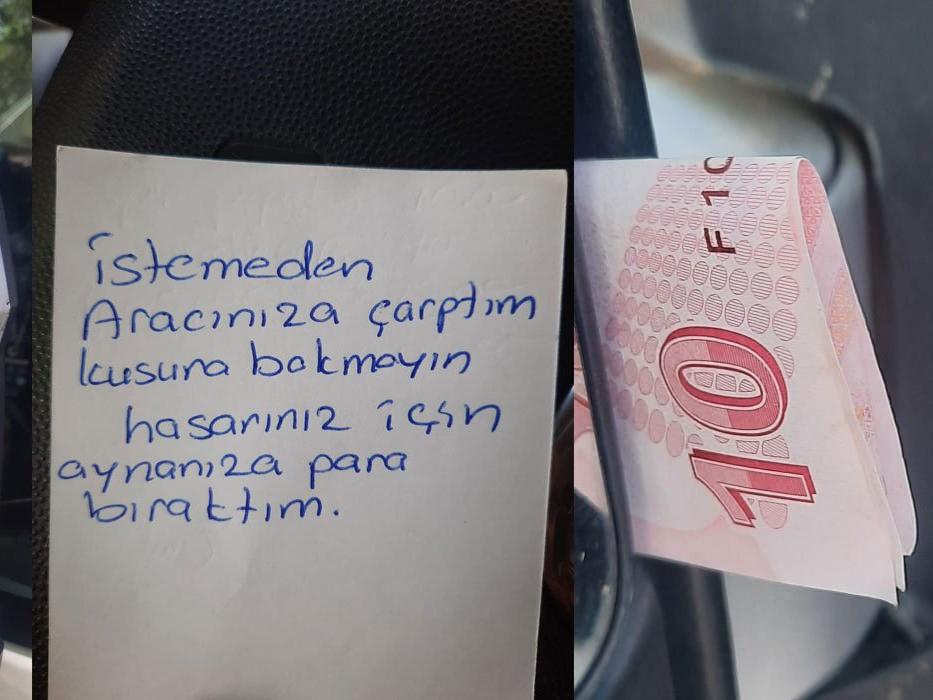 İstemeden
Aracınıza çarptım
kusura bakmayın
hasarınız için
aynanıza para
bıraktım.
F 10
10